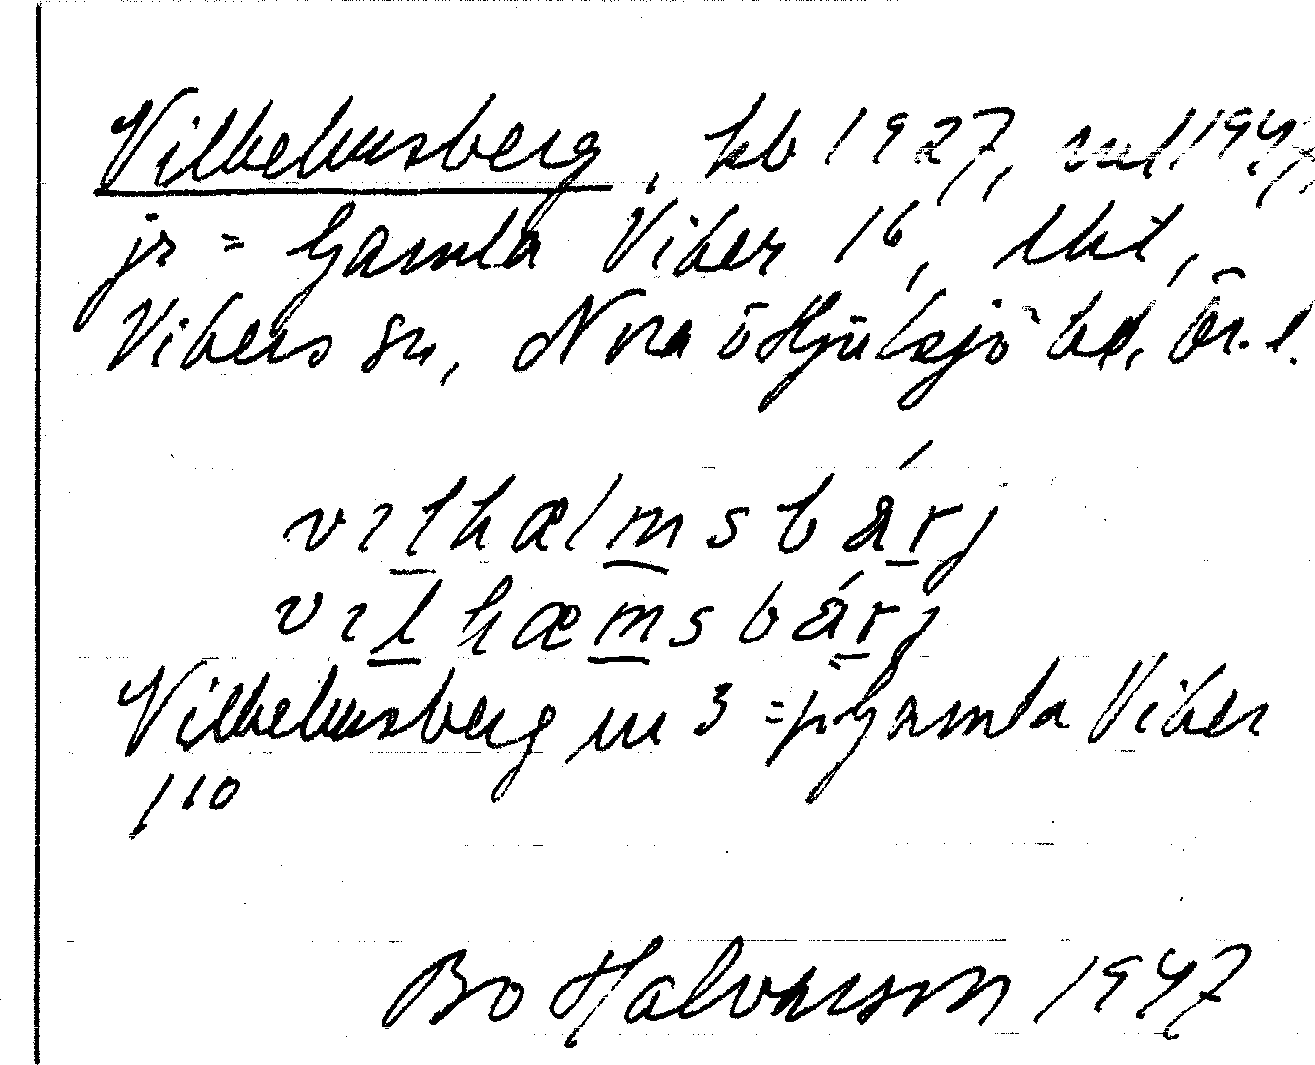 Vilhelmsberg, kb 1927, ml 1947,
js = Gamla Viber 1⁶, lht,
Vibers sn, Nora o Hjulsjö bd, Ör. l.
vılhælmsbárj
vılhæmsbárj
Vilhelmsberg nr 3 = Gamla Viber
1¹⁰
Bo Halvarson 1947